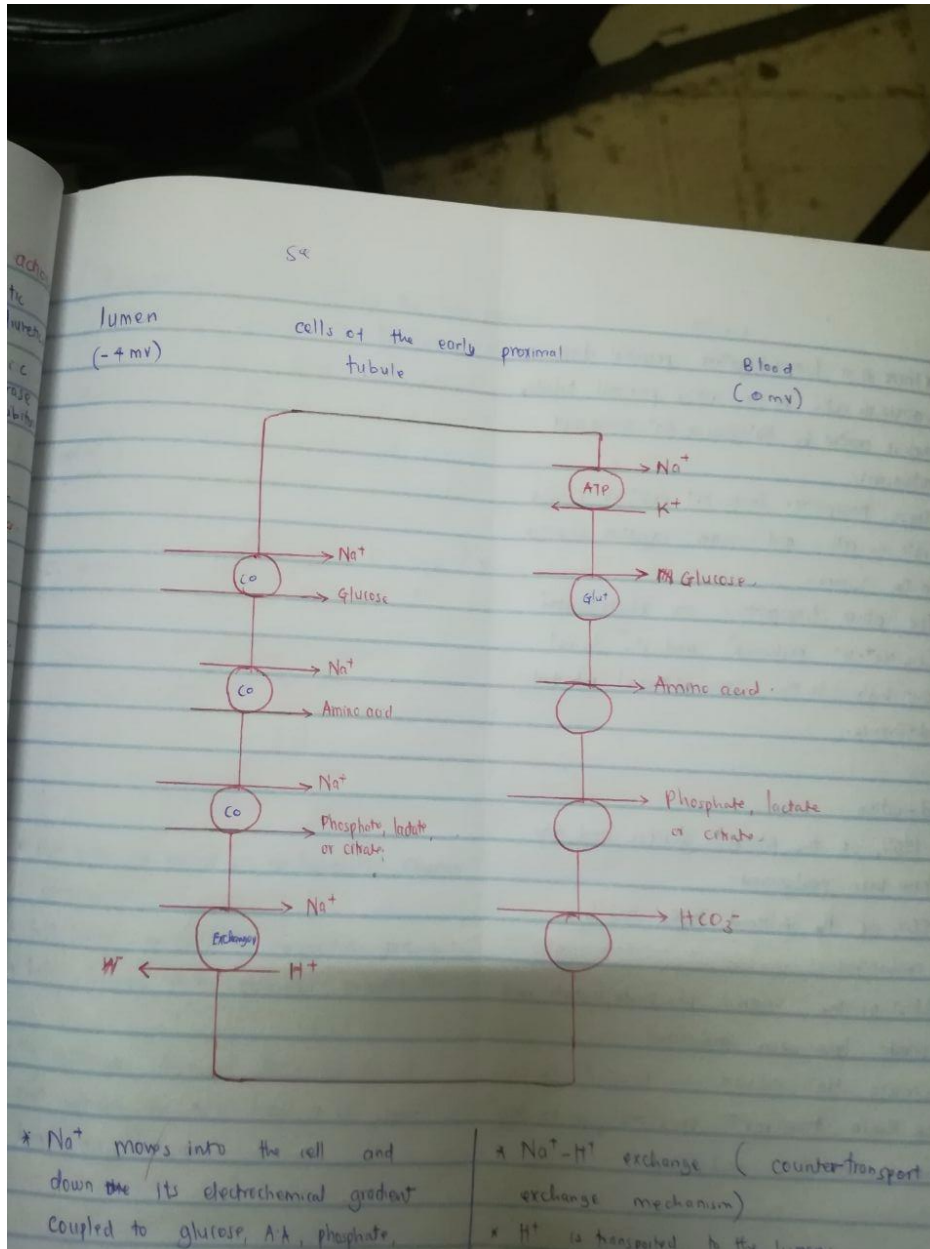 lumen
(-4 mv)
cells of the early proximal
tubule
Blood
(0 mv)
Na⁺
ATP
K⁺
Na⁺
CO
Glucose
Glucose.
Glut
Na⁺
CO
Amino acid
Amino acid.
Na⁺
CO
Phosphate, lactate,
or citrate.
Phosphate, lactate
or citrate.
Na⁺
Exchanger
H⁺
HCO₃⁻
* Na⁺ moves into the cell and
down its electrochemical gradient
coupled to glucose, A.A, phosphate,
* Na⁺-H⁺ exchange ( countertransport
exchange mechanism)
* H⁺ is transported to the